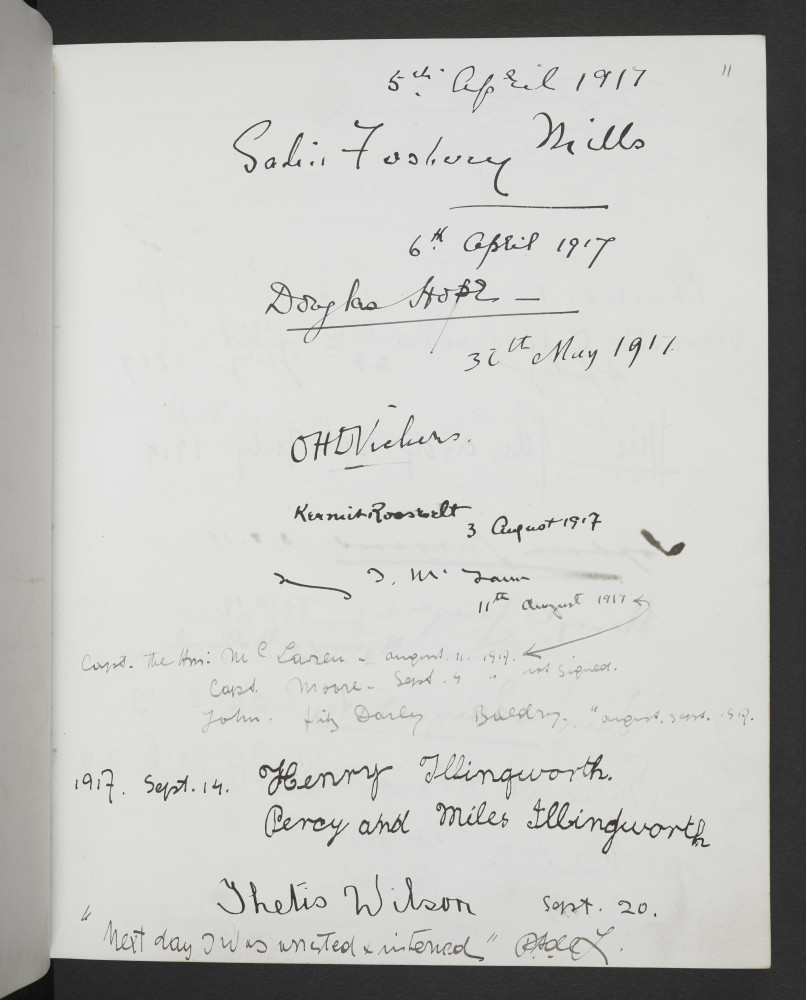 11
5th April 1917
Fosbery Mills
6th April 1917
Douglas Hope
May 1917
OHD Vickers.
Kermit Roosevelt 3 August 1917
11th August 1917
Capt. the Hon: Mc Laren - August. 11. 1917.
Capt. Moore - Sept. 4 " not signed.
John. Fitz Darley Baldry. "August. Sept. 1917.
1917. Sept. 14. Henry Illingworth.
Percy and Miles Illingworth
Thetis Wilson Sept. 20.
"Next day I was arrested & interned"